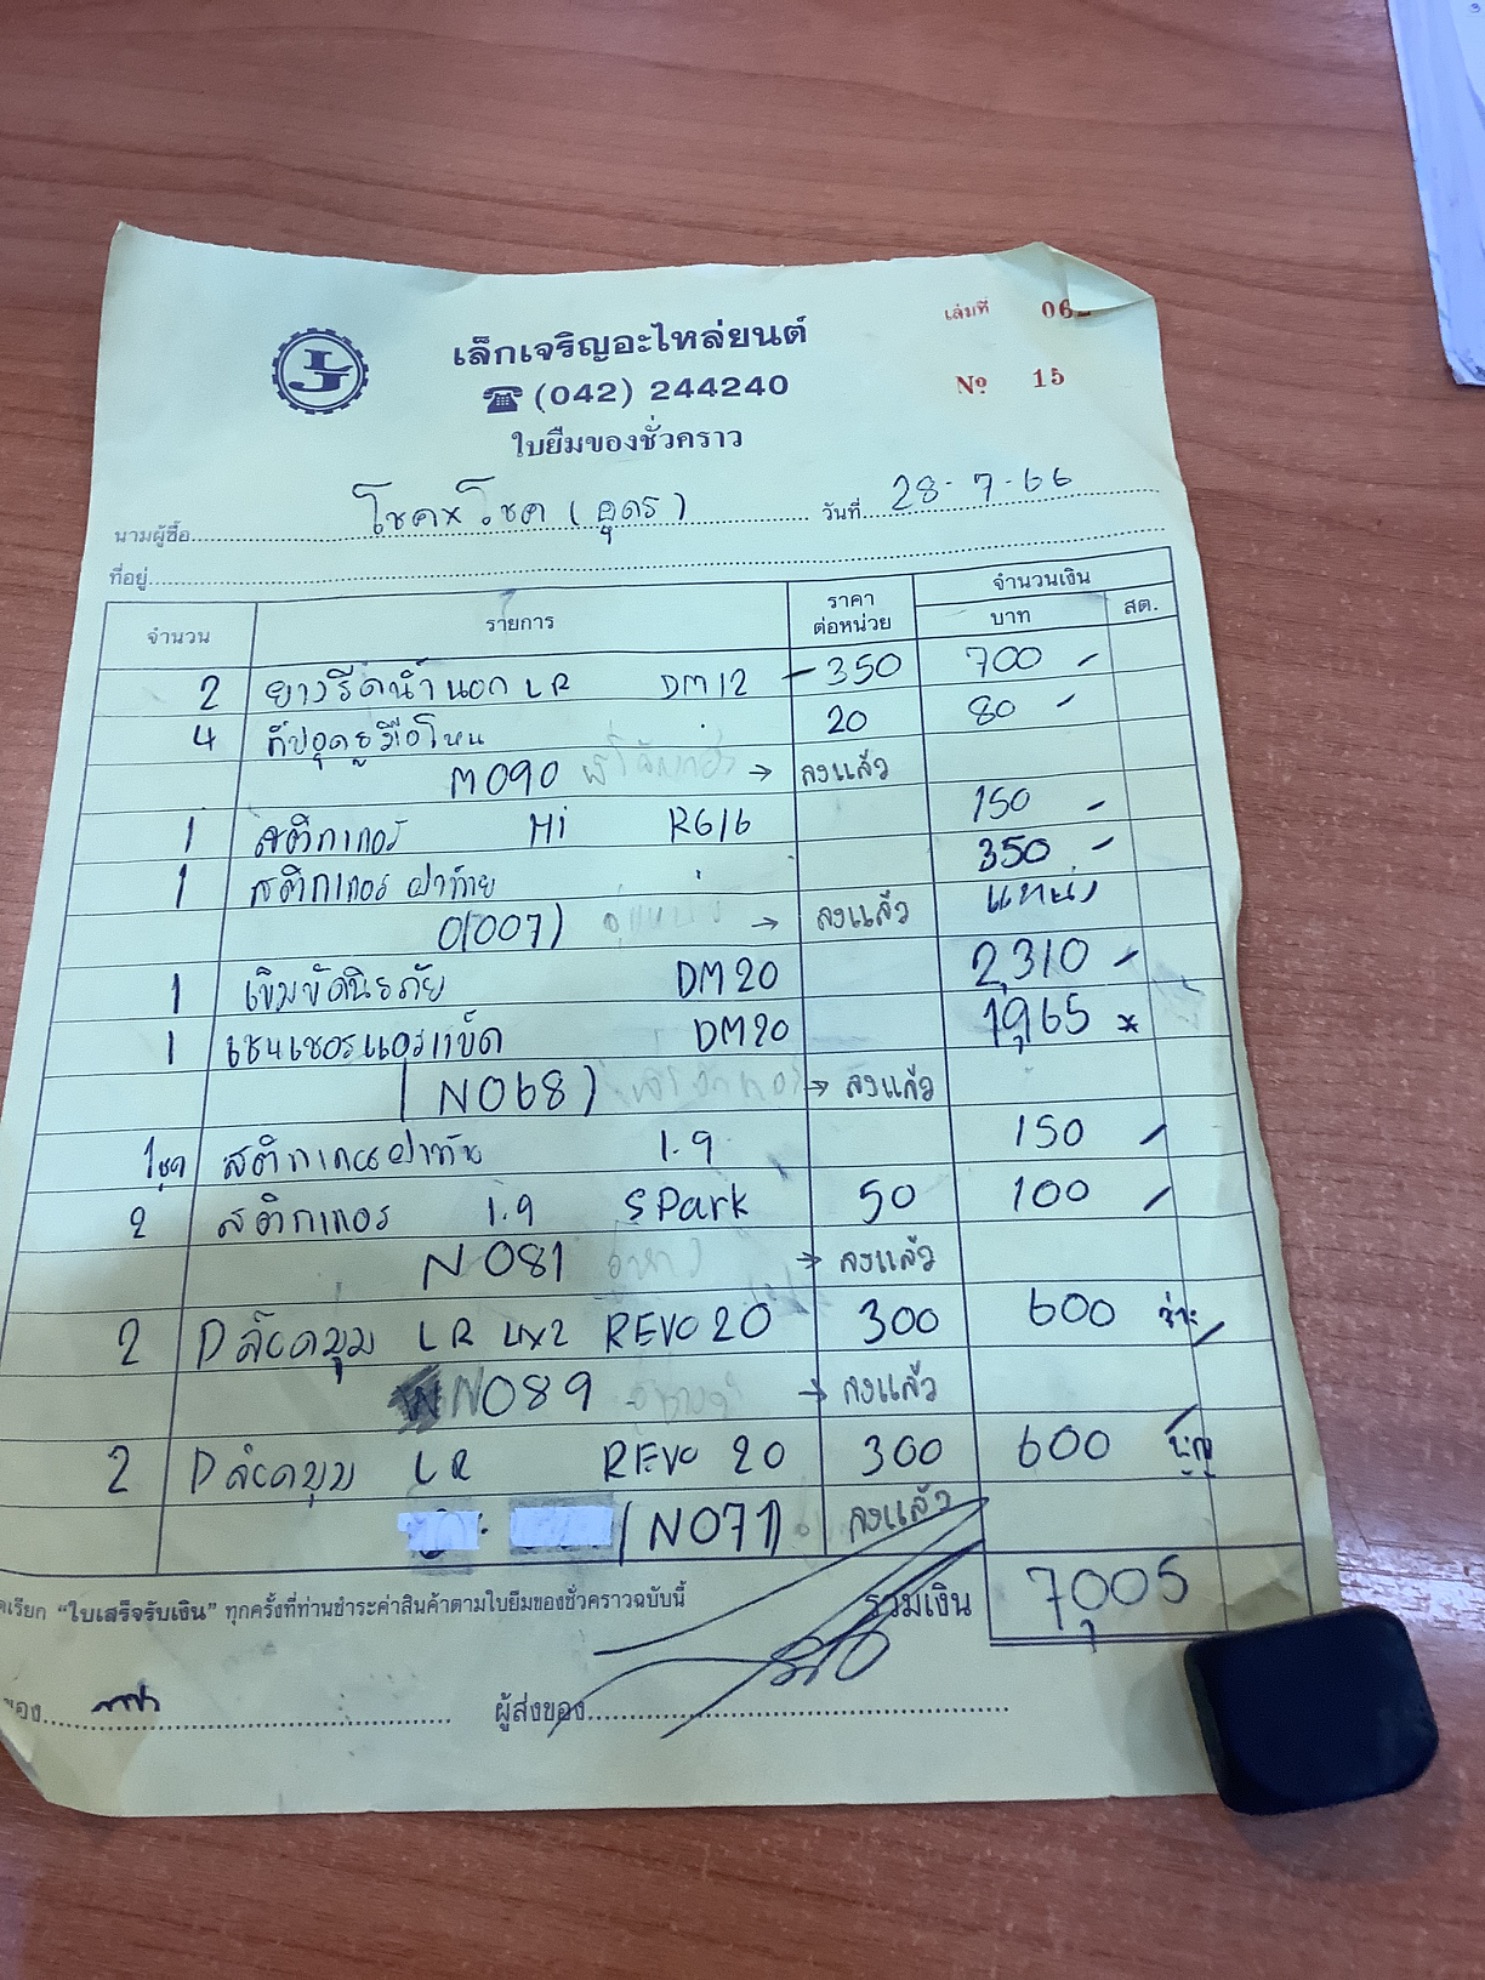 เล่มที่ 06
เล็กเจริญอะไหล่ยนต์
(042) 244240
Nº 15
ใบยืมของชั่วคราว
นามผู้ซื้อ โชคxโชค (อุดร) วันที่ 28-7-66
ที่อยู่
จำนวน รายการ ราคาต่อหน่วย จำนวนเงิน
บาท สต.
2 ยางรีดน้ำนอก LR DM12 350 700 -
4 20 80 -
M090 → ลงแล้ว
1 สติกเกอร์ Hi R616 150 -
1 สติกเกอร์ ฝาท้าย 350 -
0(007) → ลงแล้ว
1 เข็มขัดนิรภัย DM20 2,310 -
1 DM20 1,965 *
(N068) → ลงแล้ว
1ชุด สติกเกอร์ฝาท้าย 1.9 150 -
2 สติกเกอร์ 1.9 SPark 50 100 -
N081 → ลงแล้ว
2 Pล๊อคมุม LR 4x2 REVO 20 300 600
N089 → ลงแล้ว
2 Pล๊อคมุม LR REVO 20 300 600
(N071) ลงแล้ว
เรียก "ใบเสร็จรับเงิน" ทุกครั้งที่ท่านชำระค่าสินค้าตามใบยืมของชั่วคราวฉบับนี้ รวมเงิน 7,005
ของ ผู้ส่งของ